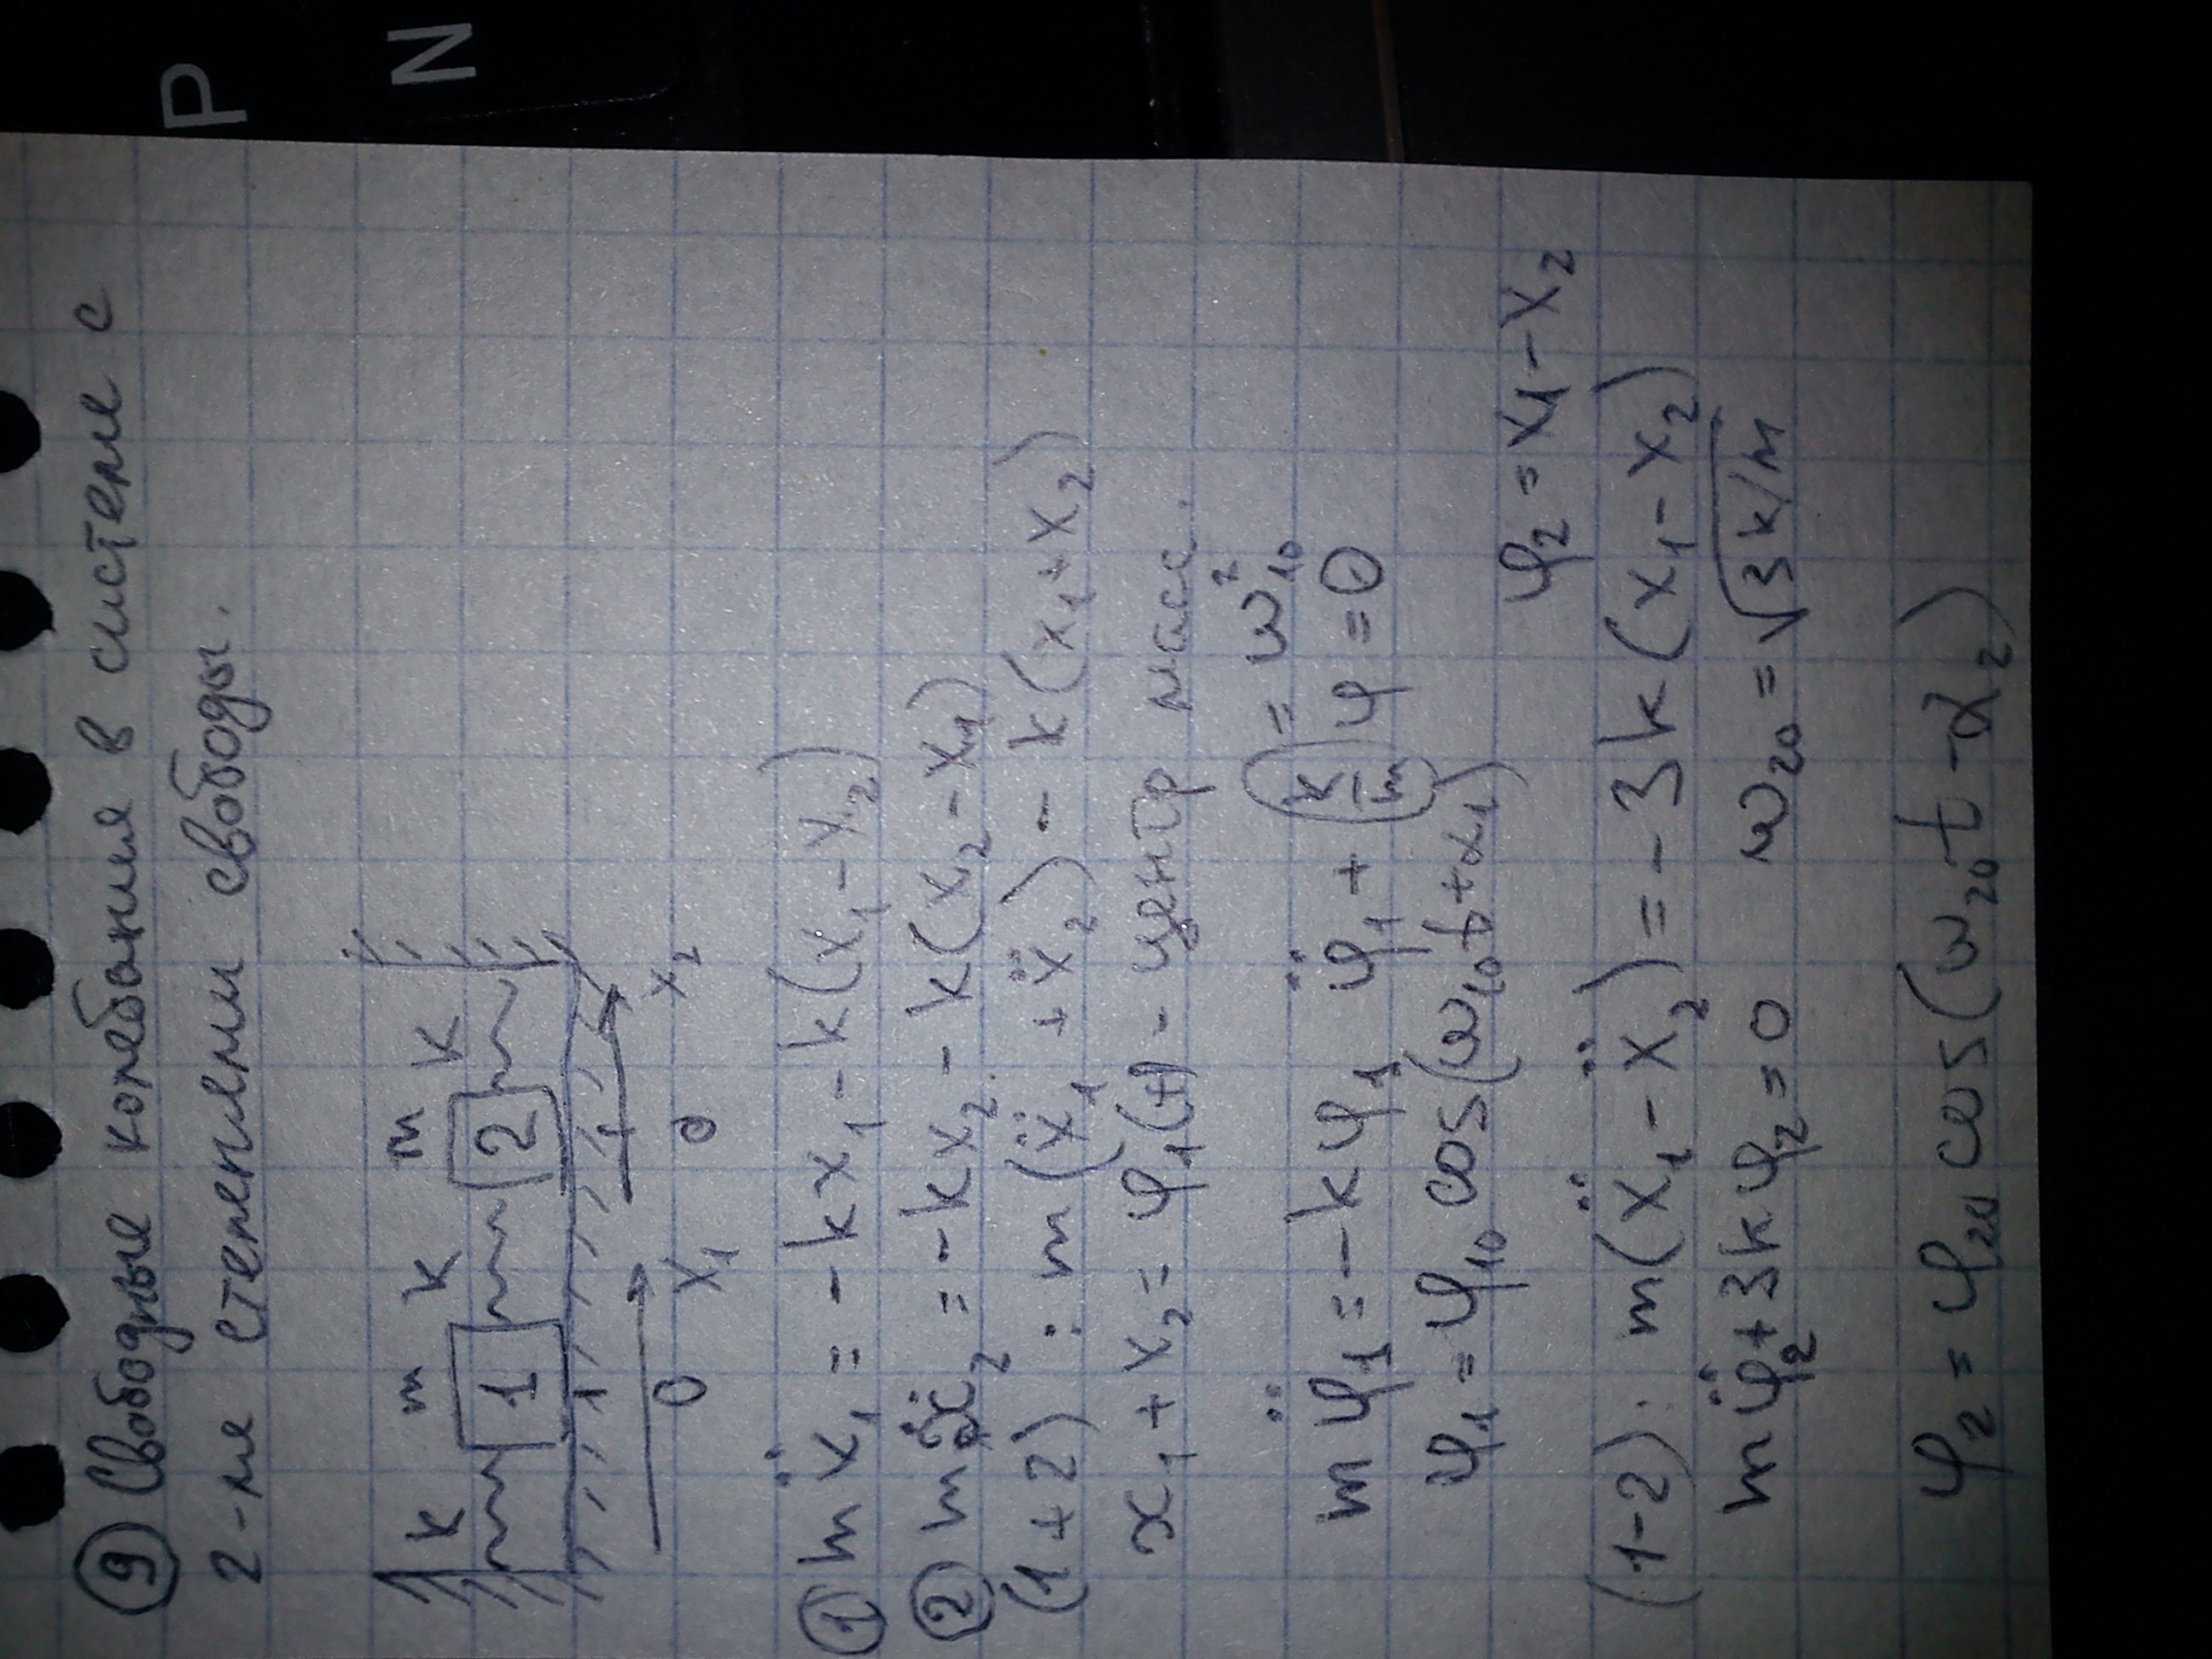 P
N
⑨ Свободные колебания в системе с
2-мя степенями свободы.
k m k m k
1 2
0 x₁ 0 x₂
① mẍ₁ = -kx₁ - k(x₁-x₂)
② mẍ₂ = -kx₂ - k(x₂-x₁)
(1+2) : m(ẍ₁+ẍ₂) - k(x₁+x₂)
x₁+x₂ = φ₁(t) - центр масс.
mφ̈₁ = -kφ₁ φ̈₁ + (k/m)φ = 0 = ω²₁₀
φ₁ = φ₁₀ cos(ω₁₀t+α₁)
φ₂ = x₁-x₂
(1-2): m(ẍ₁-ẍ₂) = -3k(x₁-x₂)
mφ̈₂+3kφ₂=0 ω₂₀ = √3k/m
φ₂ = φ₂₀ cos(ω₂₀t-α₂)